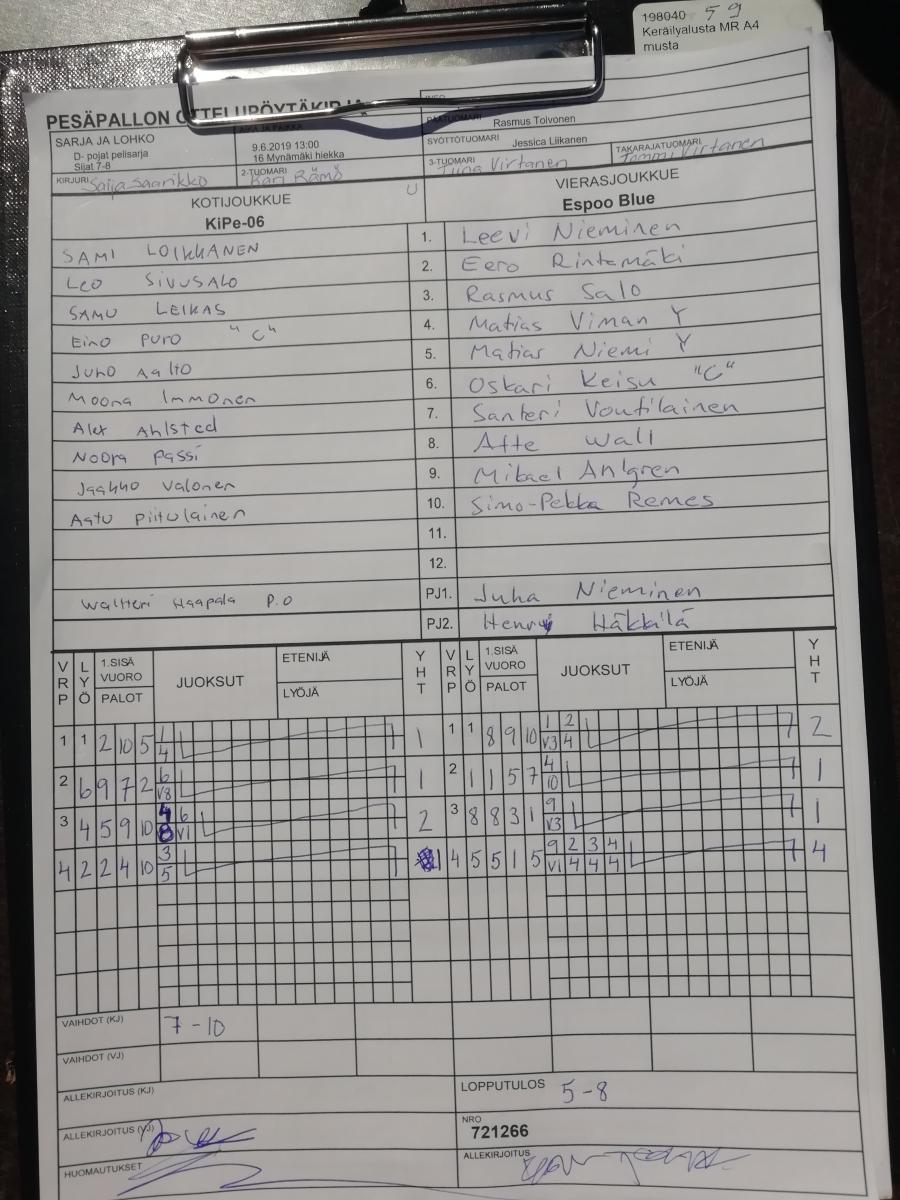 198040 59
Keräilyalusta MR A4
musta
PESÄPALLON OTTELUPÖYTÄKIRJA
INFO
SARJA JA LOHKO
D- pojat pelisarja
Sijat 7-8
AIKA JA PAIKKA
9.6.2019 13:00
16 Mynämäki hiekka
PÄÄTUOMARI Rasmus Toivonen
SYÖTTÖTUOMARI Jessica Liikanen
KIRJURI Saija Saarikko
2-TUOMARI Kari Rämö
3-TUOMARI Tiina Virtanen
TAKARAJATUOMARI Tommi Virtanen
KOTIJOUKKUE U
KiPe-06
VIERASJOUKKUE
Espoo Blue
SAMI LOIKKANEN 1. Leevi Nieminen
LEO SIVUSALO 2. Eero Rintamäki
SAMU LEIKAS 3. Rasmus Salo
Eino PURO "C" 4. Matias Viman Y
JUHO AALTO 5. Matias Niemi Y
Moona Immonen 6. Oskari Keisu "C"
Alex Ahlsted 7. Santeri Voutilainen
Noora Passi 8. Atte Wall
Jaakko Valonen 9. Mikael Ahlgren
Aatu Piitulainen 10. Simo-Pekka Remes
11.
12.
Waltteri Haapala P.O PJ1. Juha Nieminen
PJ2. Henri Häkkilä
VRP LYÖ 1.SISÄ VUORO PALOT JUOKSUT ETENIJÄ LYÖJÄ YHT VRP LYÖ 1.SISÄ VUORO PALOT JUOKSUT ETENIJÄ LYÖJÄ YHT
1 1 2 10 5 1 1 1 8 9 10 1 2 2
4 V3 4
2 6 9 7 2 6 1 2 1 1 5 7 4 1
V8 10
3 4 5 9 10 4 6 2 3 8 8 3 1 9 1
8 V1 V3
4 2 2 4 10 3 1 4 5 5 1 5 9 2 3 4 4
5 V1 4 4 4
VAIHDOT (KJ) 7-10
VAIHDOT (VJ)
ALLEKIRJOITUS (KJ)
LOPPUTULOS 5-8
ALLEKIRJOITUS (VJ)
NRO
721266
HUOMAUTUKSET
ALLEKIRJOITUS